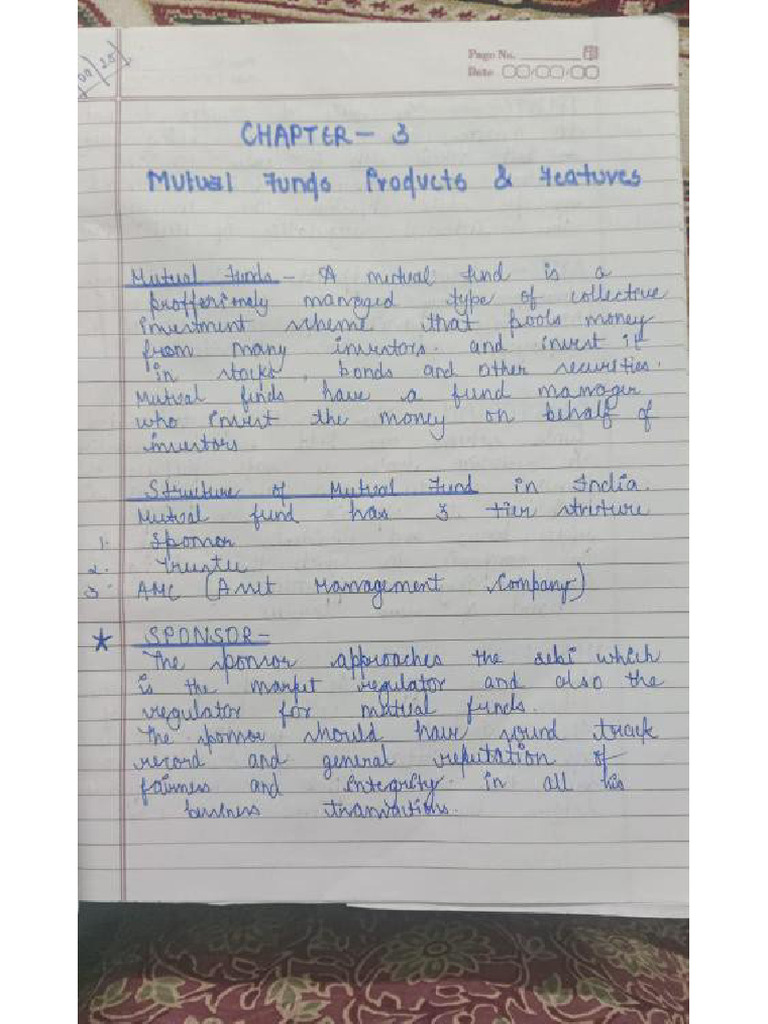 Page No.
Date
CHAPTER - 3
Mutual Funds Products & Features
Mutual Funds - A mutual fund is a
proffesionely managed type of collective
investment scheme that pools money
from many investors. and invest it
in stocks, bonds and other securities.
Mutual finds have a fund manager
who invest the money on behalf of
investors
Struiture of Mutual Fund in India.
Mutual fund has 3 tier struture
1. Sponsor
2. Trustee
3. AMC (Asset Management Company)
★ SPONSOR -
The sponsor approaches the sebi which
is the market regulator and also the
regulator for mutual funds.
The sponsor should have sound track
record and general reputation of
fairness and integrity in all his
business transactions.